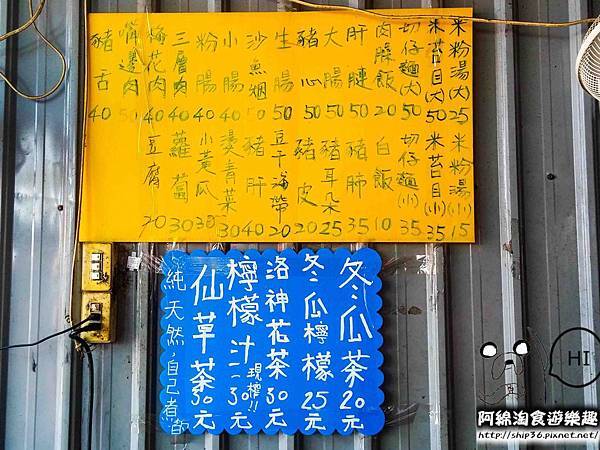 米粉湯(大)25
米苔目(大)50
切仔麵(大)50
肉燥飯20
肝腱50
大腸50
豬心50
生腸50
沙魚煙50
小腸40
粉腸40
三層肉40
梅花肉40
嘴邊肉50
豬舌40
米粉湯(小)15
米苔目(小)35
切仔麵(小)35
白飯10
豬肺35
豬耳朵25
豬皮20
豆干海帶20
豬肝40
燙青菜30
小黃瓜30
蘿蔔30
豆腐20
冬瓜茶20元
冬瓜檸檬25元
洛神花茶30元
檸檬汁30元
現榨!!
仙草茶30元
純天然,自己煮
HI
阿綿淘食遊樂趣
http://ship36.pixnet.net/